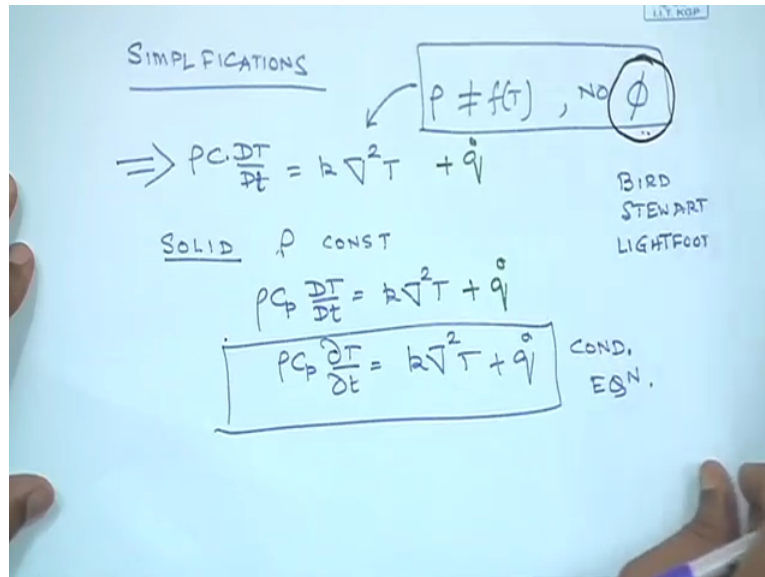 I.I.T. KGP
SIMPLFICATIONS
ρ ≠ f(T) , NO ϕ
⇒ ρC. DT/Dt = k ∇²T + q̇
BIRD
STEWART
LIGHTFOOT
SOLID ρ CONST
ρCp DT/Dt = k∇²T + q̇
ρCp ∂T/∂t = k∇²T + q̇
COND.
EQN.